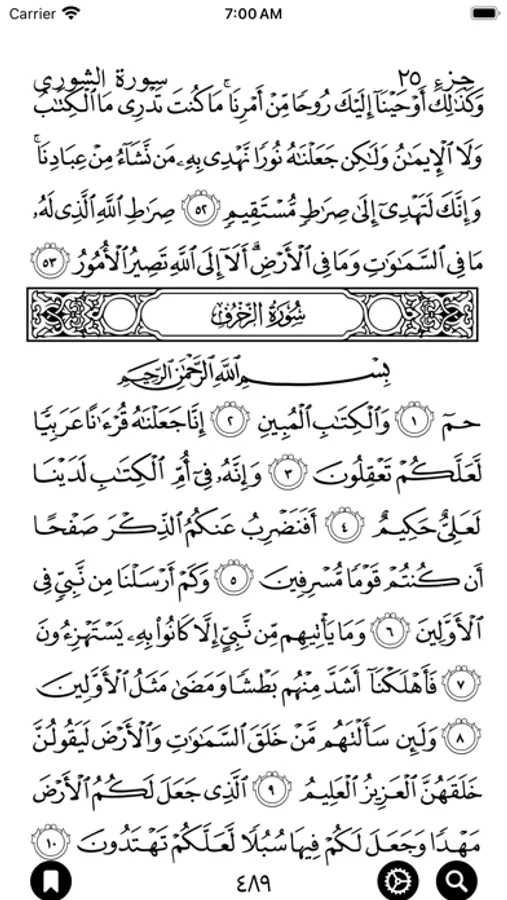 Carrier 7:00 AM
جزء ٢٥ سورة الشورى
وَكَذَٰلِكَ أَوْحَيْنَآ إِلَيْكَ رُوحًا مِّنْ أَمْرِنَا ۚ مَا كُنتَ تَدْرِى مَا ٱلْكِتَٰبُ
وَلَا ٱلْإِيمَٰنُ وَلَٰكِن جَعَلْنَٰهُ نُورًا نَّهْدِى بِهِۦ مَن نَّشَآءُ مِنْ عِبَادِنَا ۚ
وَإِنَّكَ لَتَهْدِىٓ إِلَىٰ صِرَٰطٍ مُّسْتَقِيمٍ ٥٢ صِرَٰطِ ٱللَّهِ ٱلَّذِى لَهُۥ
مَا فِى ٱلسَّمَٰوَٰتِ وَمَا فِى ٱلْأَرْضِ ۗ أَلَآ إِلَى ٱللَّهِ تَصِيرُ ٱلْأُمُورُ ٥٣
سُورَةُ الزُّخْرُفِ
بِسْمِ ٱللَّهِ ٱلرَّحْمَٰنِ ٱلرَّحِيمِ
حمٓ ١ وَٱلْكِتَٰبِ ٱلْمُبِينِ ٢ إِنَّا جَعَلْنَٰهُ قُرْءَٰنًا عَرَبِيًّا
لَّعَلَّكُمْ تَعْقِلُونَ ٣ وَإِنَّهُۥ فِىٓ أُمِّ ٱلْكِتَٰبِ لَدَيْنَا
لَعَلِىٌّ حَكِيمٌ ٤ أَفَنَضْرِبُ عَنكُمُ ٱلذِّكْرَ صَفْحًا
أَن كُنتُمْ قَوْمًا مُّسْرِفِينَ ٥ وَكَمْ أَرْسَلْنَا مِن نَّبِىٍّ فِى
ٱلْأَوَّلِينَ ٦ وَمَا يَأْتِيهِم مِّن نَّبِىٍّ إِلَّا كَانُوا۟ بِهِۦ يَسْتَهْزِءُونَ
٧ فَأَهْلَكْنَآ أَشَدَّ مِنْهُم بَطْشًا وَمَضَىٰ مَثَلُ ٱلْأَوَّلِينَ
٨ وَلَئِن سَأَلْتَهُم مَّنْ خَلَقَ ٱلسَّمَٰوَٰتِ وَٱلْأَرْضَ لَيَقُولُنَّ
خَلَقَهُنَّ ٱلْعَزِيزُ ٱلْعَلِيمُ ٩ ٱلَّذِى جَعَلَ لَكُمُ ٱلْأَرْضَ
مَهْدًا وَجَعَلَ لَكُمْ فِيهَا سُبُلًا لَّعَلَّكُمْ تَهْتَدُونَ ١٠
٤٨٩